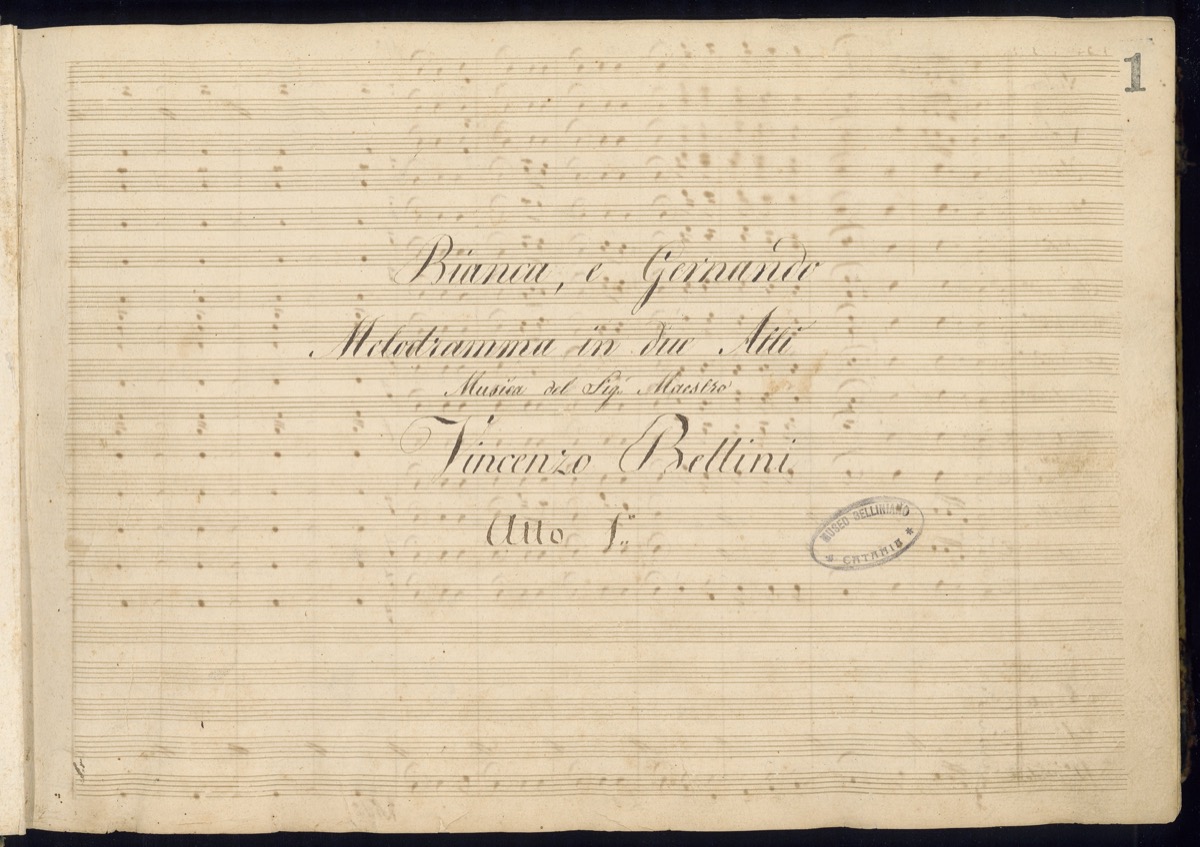 1
Bianca, e Gernando
Melodramma in due Atti
Musica del Sig.r Maestro
Vincenzo Bellini
Atto 1.º
MUSEO BELLINIANO
* CATANIA *